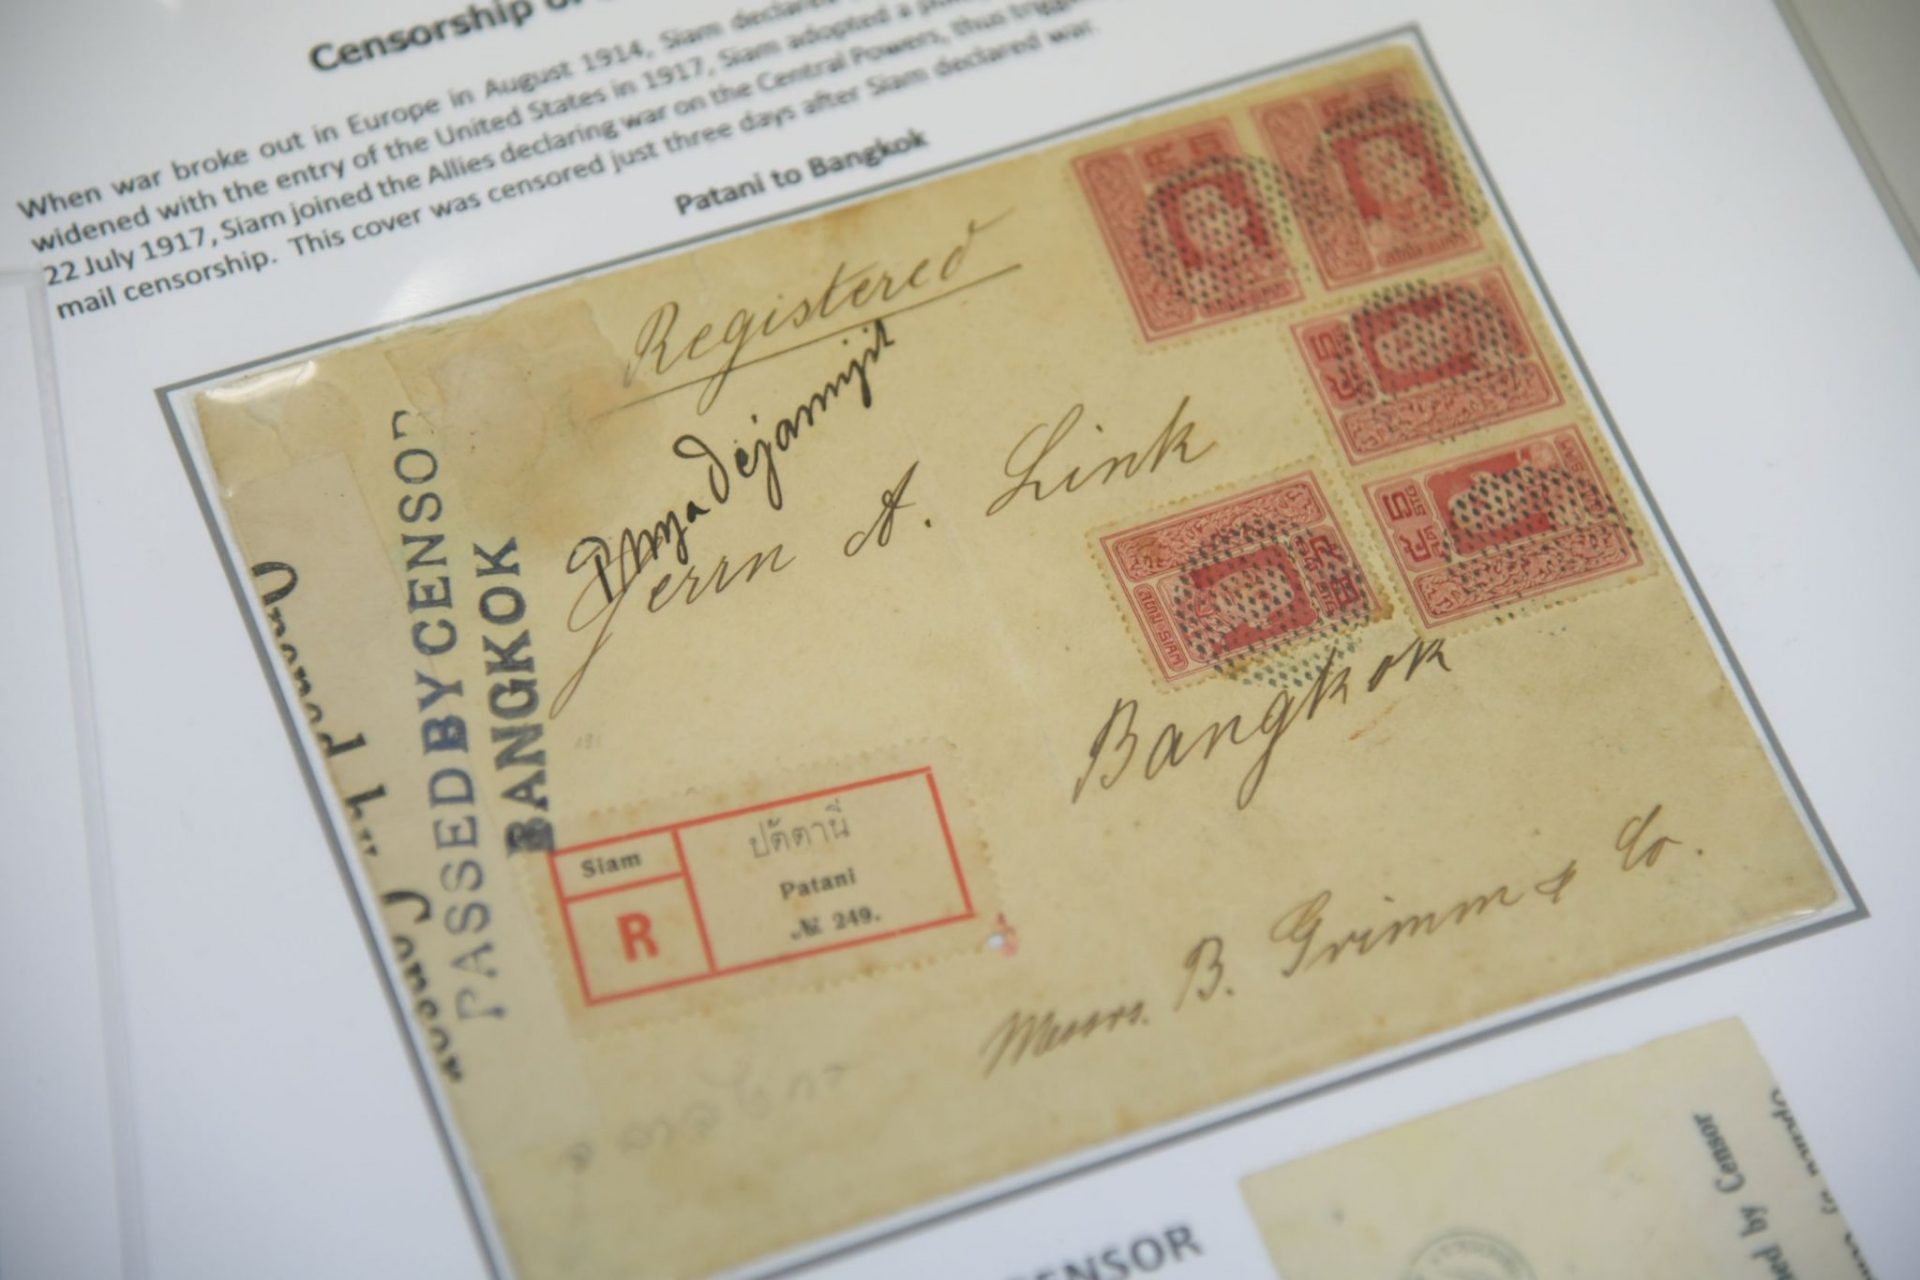 Censorship
When war broke out in Europe in August 1914, Siam declared
widened with the entry of the United States in 1917, Siam adopted a
22 July 1917, Siam joined the Allies declaring war on the Central Powers, thus
mail censorship. This cover was censored just three days after Siam declared war.
Patani to Bangkok
Registered
Phya Dejanujit
Herrn A. Link
Bangkok
Messrs. B. Grimm & Co.
PASSED BY CENSOR
BANGKOK
Siam
R
ปัตตานี
Patani
№ 249.
สยาม-SIAM
5
STG
CENSOR
by Censor